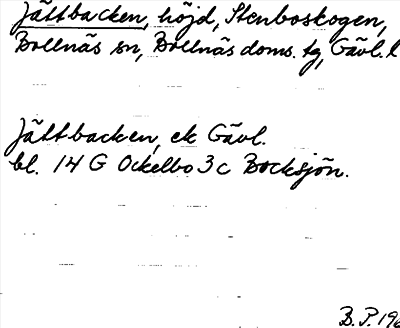 Jättbacken, höjd, Stenboskogen,
Bollnäs sn, Bollnäs doms. tg, Gävl. l
Jättbacken, ek Gävl.
bl. 14 G Ockelbo 3 c Bocksjön.
B. P. 196